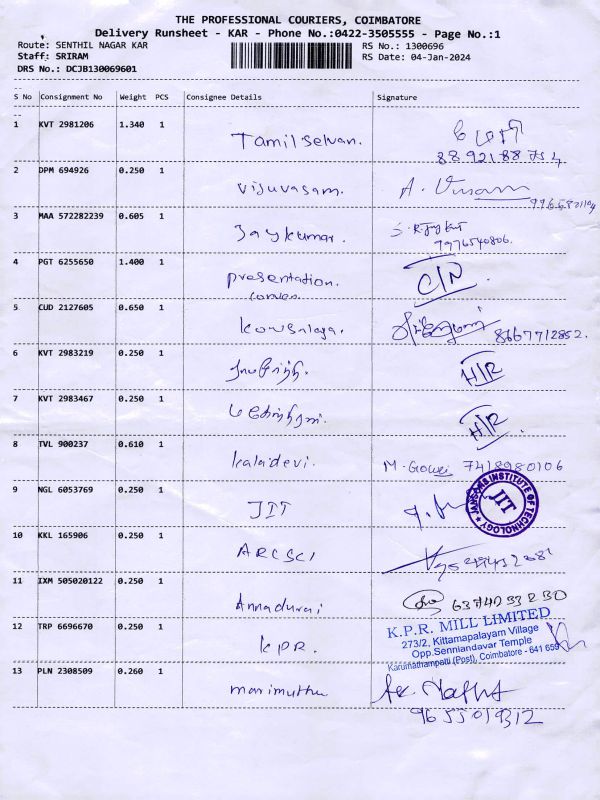 THE PROFESSIONAL COURIERS, COIMBATORE
Delivery Runsheet - KAR - Phone No.:0422-3505555 - Page No.:1
Route: SENTHIL NAGAR KAR RS No.: 1300696
Staff: SRIRAM RS Date: 04-Jan-2024
DRS No.: DCJB130069601
S No Consignment No Weight PCS Consignee Details Signature
1 KVT 2981206 1.340 1 Tamilselvan.
88 921 88 754
2 DPM 694926 0.250 1 Vijuvasam.
3 MAA 572282239 0.605 1 Jaykumar.
7976540806.
4 PGT 6255650 1.400 1 presentation. C/N
conven.
5 CUD 2127605 0.650 1 Kowsalaya. 8667712852.
6 KVT 2983219 0.250 1 H/R
7 KVT 2983467 0.250 1 H/R
8 TVL 900237 0.610 1 Kalaidevi. M. Gowri 7418980106
9 NGL 6053769 0.250 1 JIT JANSONS INSTITUTE OF TECHNOLOGY JIT
10 KKL 165906 0.250 1 ARCSCI
11 IXM 505020122 0.250 1 Annadurai 6374033230
12 TRP 6696670 0.250 1 KPR. K.P.R. MILL LIMITED
273/2, Kittamapalayam Village
Opp.Senniandavar Temple
Karumathampatti (Post), Coimbatore - 641 659
13 PLN 2308509 0.260 1 marimuthu
9655019312